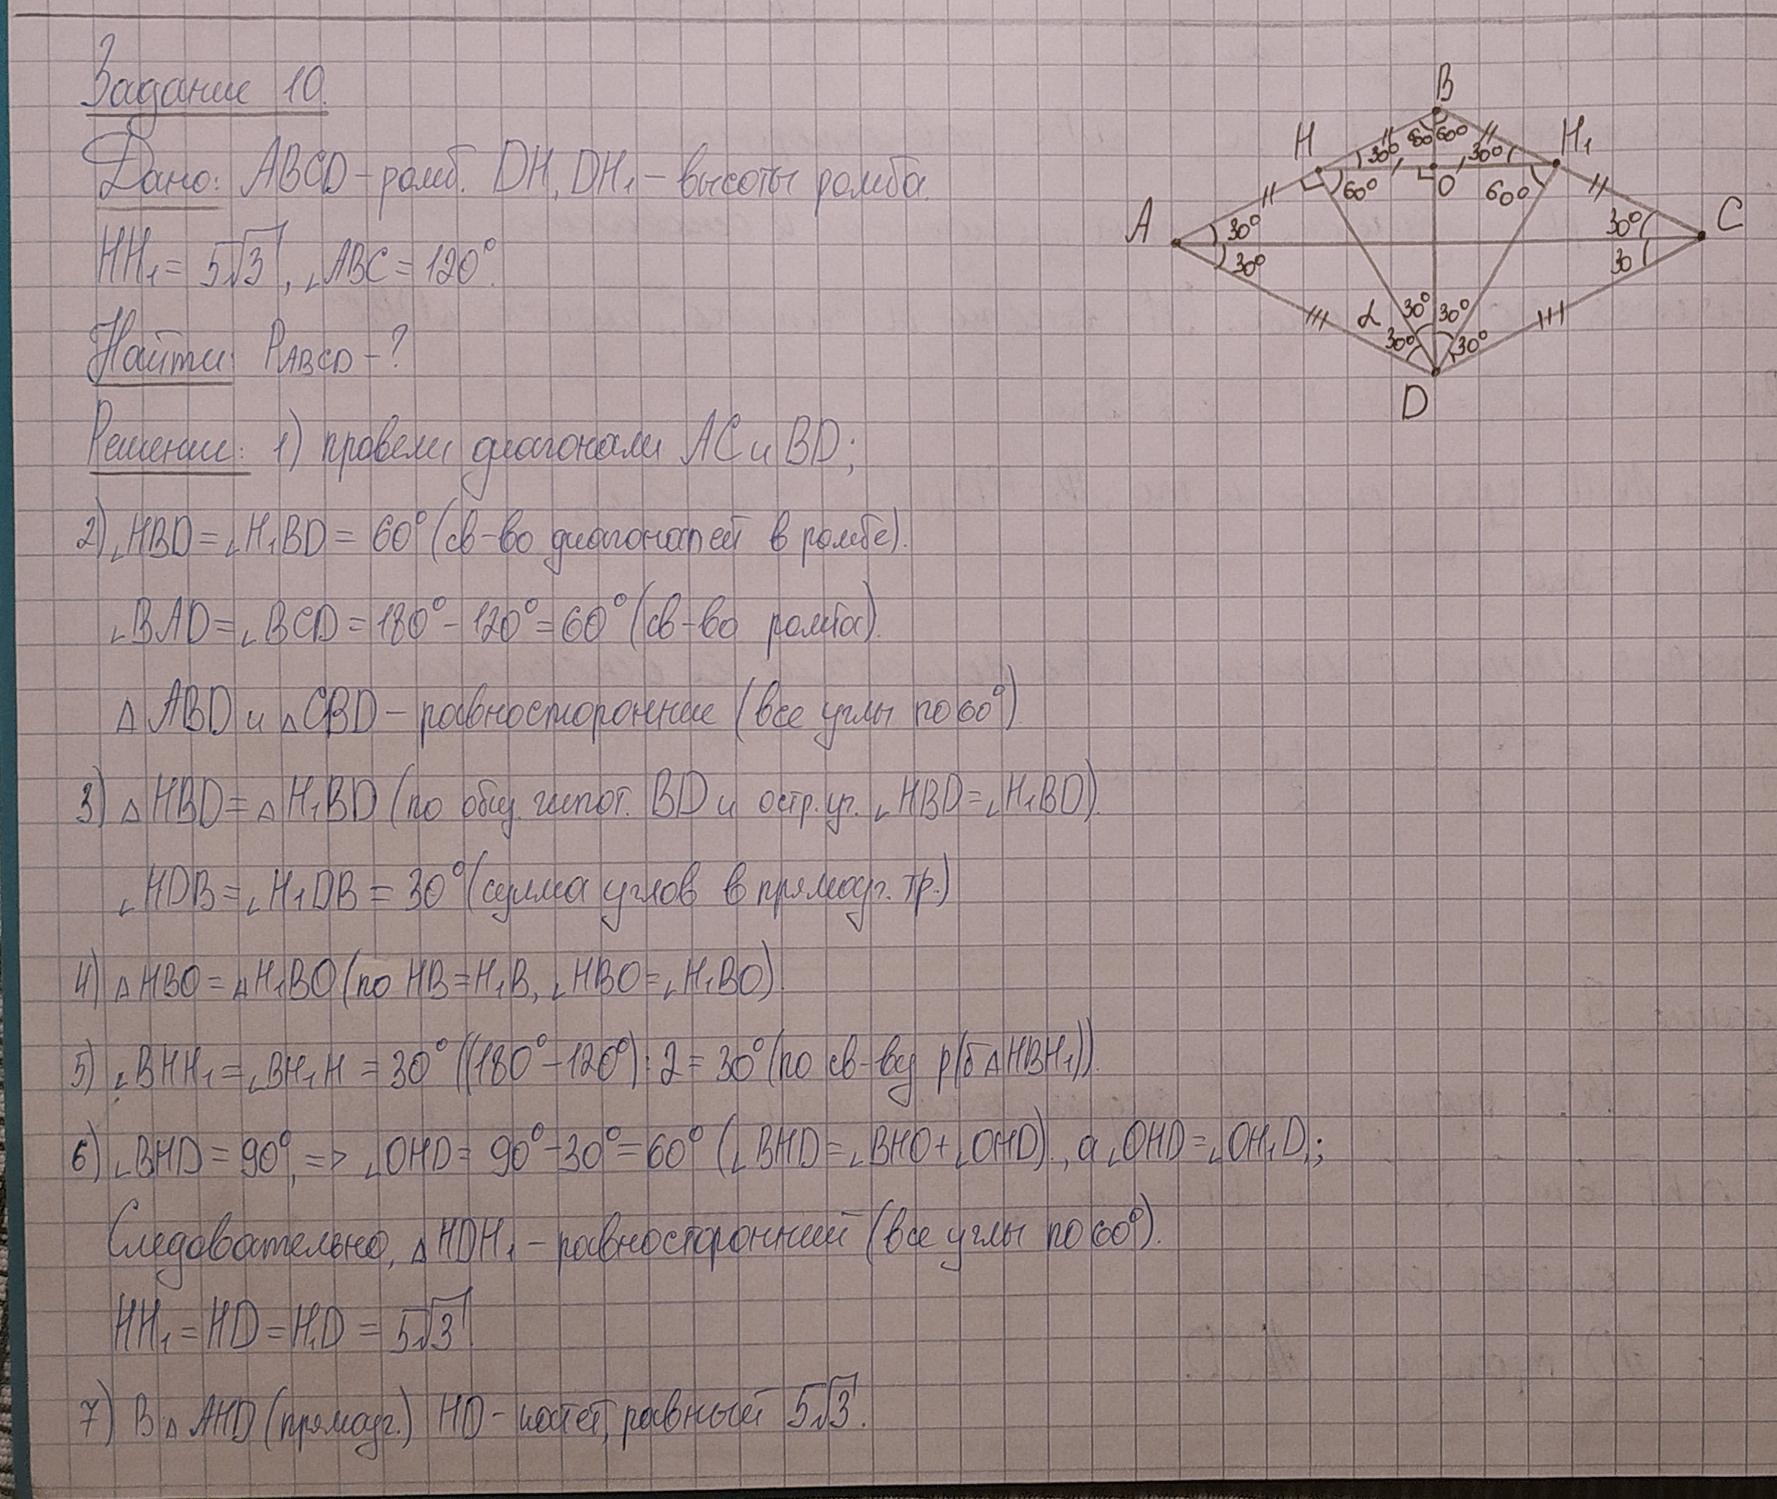 Задание 10.
Дано: ABCD - ромб. DH, DH₁ - высоты ромба.
HH₁ = 5√3, ∠ABC = 120°.
Найти: P_ABCD - ?
Решение: 1) провели диагонали AC и BD;
2) ∠HBD = ∠H₁BD = 60° (св-во диагоналей в ромбе).
∠BAD = ∠BCD = 180° - 120° = 60° (св-во ромба).
△ABD и △CBD - равносторонние (все углы по 60°)
3) △HBD = △H₁BD (по общ. гипот. BD и остр. уг. ∠HBD = ∠H₁BD).
∠HDB = ∠H₁DB = 30° (сумма углов в прямоуг. тр.)
4) △HBO = △H₁BO (по HB = H₁B, ∠HBO = ∠H₁BO)
5) ∠BHH₁ = ∠BH₁H = 30° ((180° - 120°) : 2 = 30° (по св-ву р/б △HBH₁)).
6) ∠BHD = 90°, => ∠OHD = 90° - 30° = 60° (∠BHD = ∠BHO + ∠OHD), а ∠OHD = ∠OH₁D;
Следовательно, △HDH₁ - равносторонний (все углы по 60°).
HH₁ = HD = H₁D = 5√3
7) В △AHD (прямоуг.) HD - катет, равный 5√3.
B
H
H₁
30°
60°
60°
30°
60°
O
60°
A
30°
30°
C
30°
30
α
30°
30°
30°
30°
D